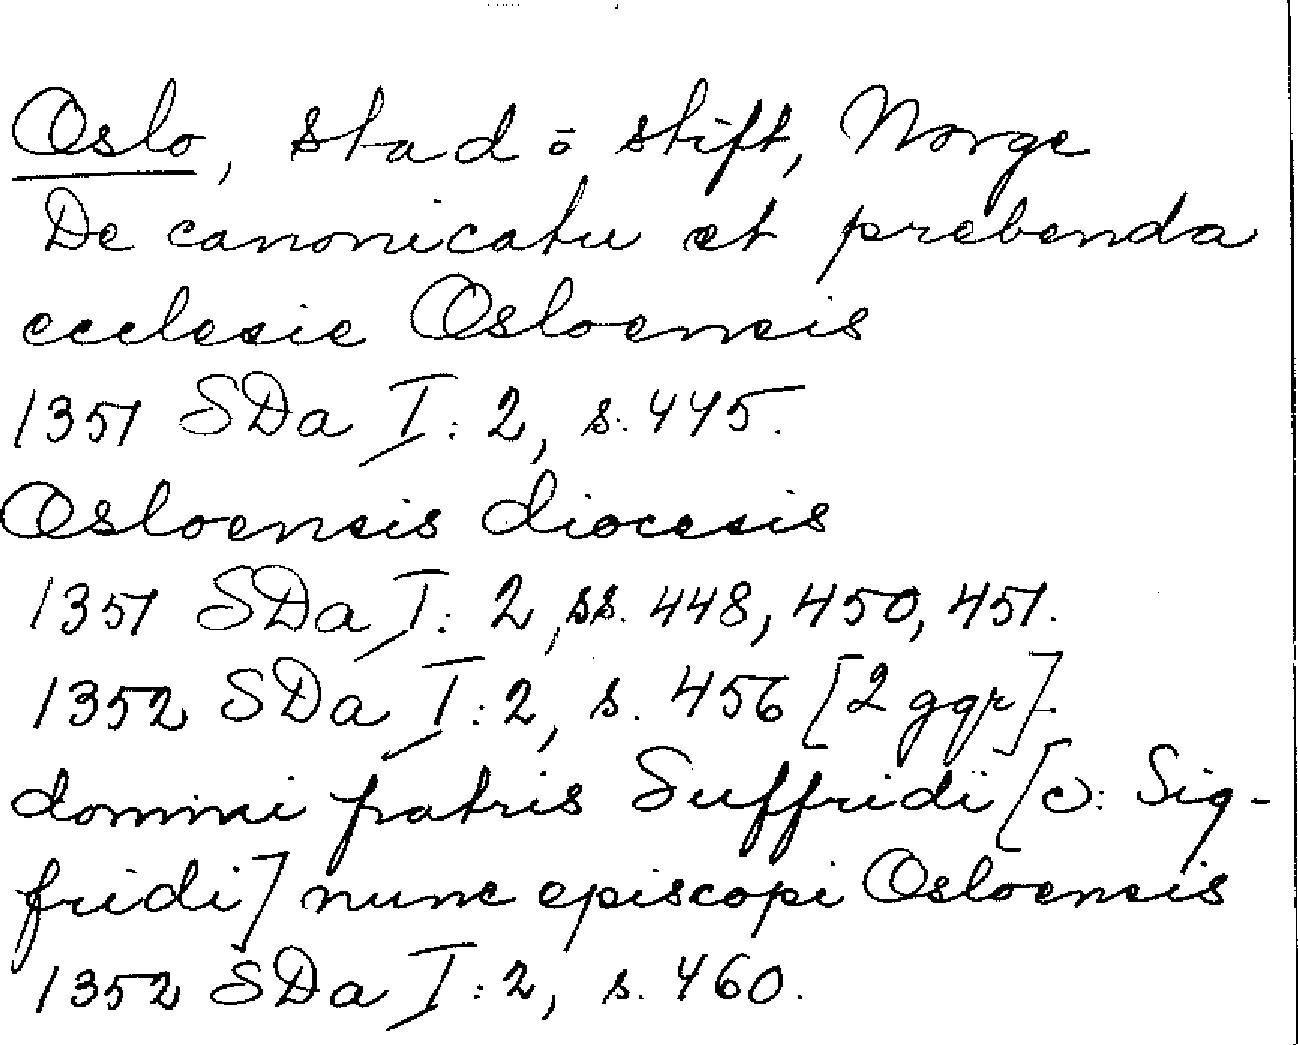 Oslo, stad o stift, Norge
De canonicatu et prebenda
ecclesie Osloensis
1351 SDa I:2, s. 445.
Osloensis diocesis
1351 SDa I:2, ss. 448, 450, 451.
1352 SDa I:2, s. 456 [2 ggr].
domini patris Suffridi [ɔ: Sig-
fridi] nunc episcopi Osloensis
1352 SDa I:2, s. 460.